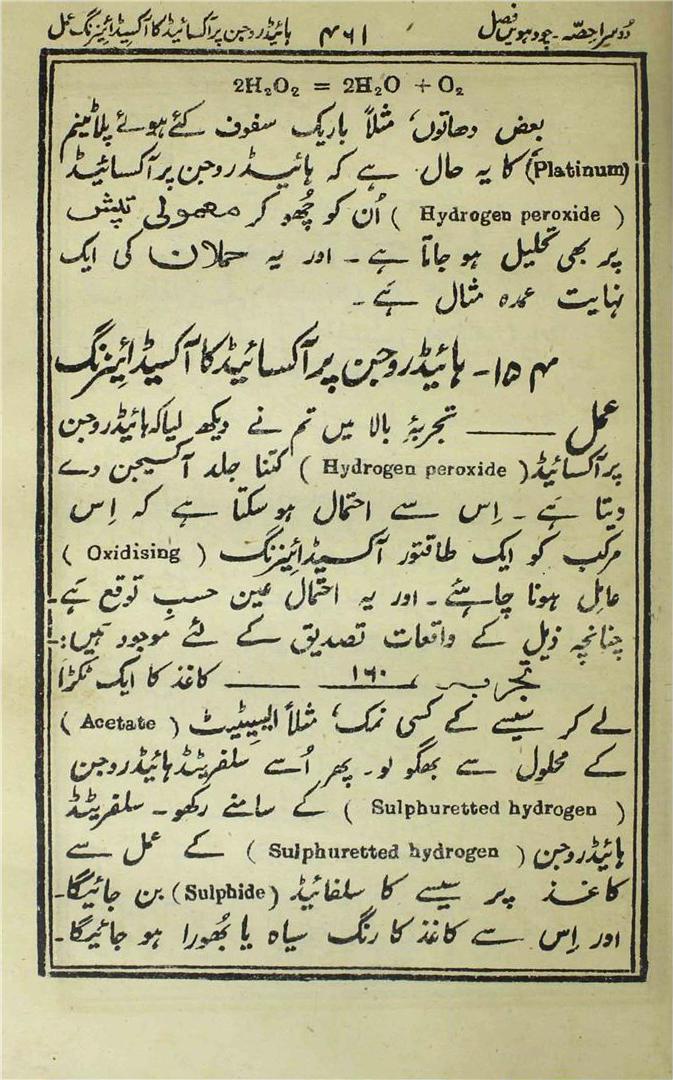 دوسرا حصّہ۔ چودہویں فصل ۴۶۱ ہائیڈروجن پر آکسائیڈ کا آکسیڈائیزنگ عمل
2H₂O₂ = 2H₂O + O₂
بعض دھاتوں، مثلاً باریک سفوف کئے ہوئے پلاٹینم
(Platinum) کا یہ حال ہے کہ ہائیڈروجن پر آکسائیڈ
( Hydrogen peroxide ) اُن کو چُھو کر معمولی تپش
پر بھی تحلیل ہو جاتا ہے۔ اور یہ حملان کی ایک
نہایت عمدہ مثال ہے۔
۱۵۴۔ ہائیڈروجن پر آکسائیڈ کا آکسیڈائیزنگ
عمل ــــــ تجربۂ بالا میں تم نے دیکھ لیا کہ ہائیڈروجن
پر آکسائیڈ ( Hydrogen peroxide ) کتنا جلد آکسیجن دے
دیتا ہے۔ اِس سے احتمال ہو سکتا ہے کہ اِس
مرکب کو ایک طاقتور آکسیڈائیزنگ ( Oxidising )
عامل ہونا چاہئے۔ اور یہ احتمال عین حسبِ توقع ہے۔
چنانچہ ذیل کے واقعات تصدیق کے لئے موجود ہیں:۔
تجربہ ۱۶۰ ــــــ کاغذ کا ایک ٹکڑا
لے کر سیسے کے کسی نمک، مثلاً ایسیٹیٹ ( Acetate )
کے محلول سے بھگو لو۔ پھر اُسے سلفریٹڈ ہائیڈروجن
( Sulphuretted hydrogen ) کے سامنے رکھو۔ سلفریٹڈ
ہائیڈروجن ( Sulphuretted hydrogen ) کے عمل سے
کاغذ پر سیسے کا سلفائیڈ (Sulphide) بن جائیگا۔
اور اِس سے کاغذ کا رنگ سیاہ یا بُھورا ہو جائیگا۔